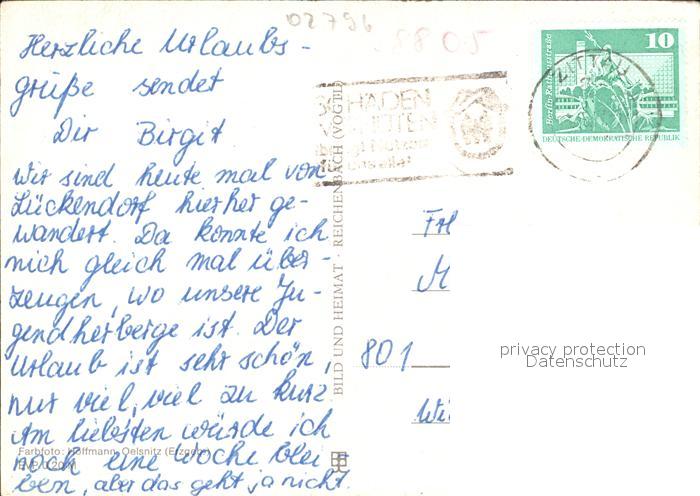 02796
8805
Herzliche Urlaubs-
grüße sendet
Dir Birgit
Wir sind heute mal von
Lückendorf hierher ge-
wandert. Da konnte ich
mich gleich mal über-
zeugen, wo unsere Ju-
gendherberge ist. Der
Urlaub ist sehr schön,
nur viel, viel zu kurz
Am liebsten würde ich
noch eine Woche blei
ben, aber das geht ja nicht.
Farbfoto: Hoffmann, Oelsnitz (Erzgeb.)
BILD UND HEIMAT · REICHENBACH (VOGTL)
SCHADEN
ZITTAU
10
Berlin-Rathausstraße
DEUTSCHE·DEMOKRATISCHE REPUBLIK
M
801
privacy protection
Datenschutz